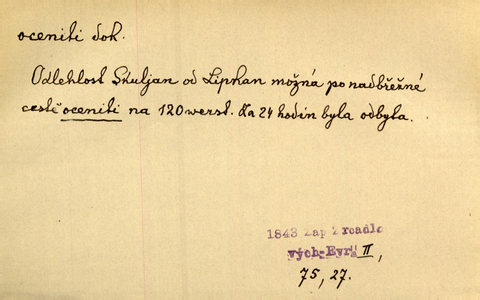 oceniti dok.
Odlehlost Skuljan od Lipkan možná po nadbřežné
cestě oceniti na 120 werst. Za 24 hodin byla odbyta.
1843 Zap Zrcadlo
vých-Evr. II,
75, 27.